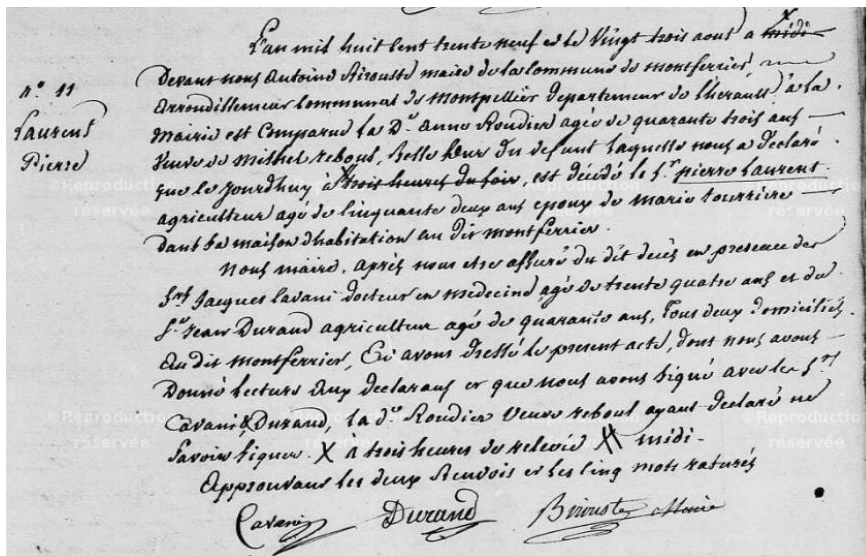 L'an mil huit cent trente neuf et le vingt trois aout a midi X
n.º 11
Laurent
Pierre
Devant nous Antoine maire de la Commune de montferrier,
arrondissement Communal de montpellier departement de l'herault, a la
mairie est Comparue la D.e anne Roudier agée de quarante trois ans
veuve de michel reboul, belle sœur du defunt laquelle nous a declaré
que le jourdhuy à # trois heures du soir, est décédé le S.r pierre Laurent
agriculteur agé de cinquante deux ans epoux de marie tourriere
dans sa maison d'habitation au dit montferrier.
Nous maire, après nous etre assuré du dit decès en presence des
S.rs Jacques Cavani docteur en medecine agé de trente quatre ans et du
S.r Jean Durand agriculteur agé de quarante ans, tous deux domiciliés
au dit montferrier, En avons dressé le present acte, dont nous avons
Donné lecture aux declarans et que nous avons signé avec les S.rs
Cavani & Durand, la d.e Roudier veuve reboul ayant declaré ne
savoir signer. X à trois heures de relevée # midi.
Approuvant les deux Renvois et les cinq mots raturés
Cavani Durand maire
©Reproduction réservée
©Reproduction réservée
©Reproduction réservée
©Reproduction réservée